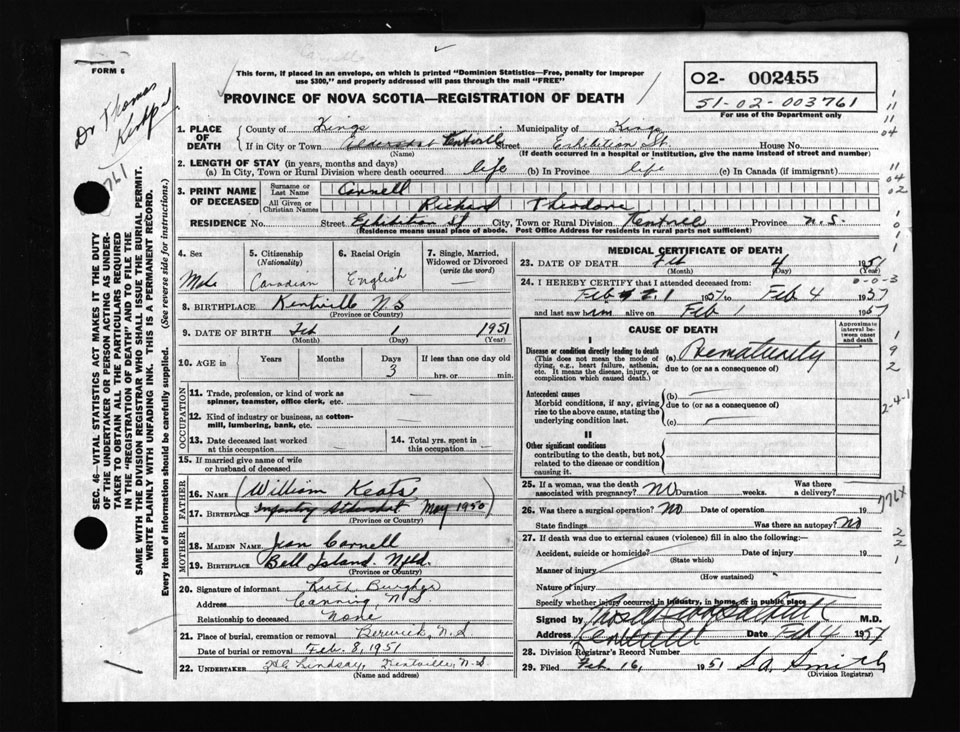 FORM 6
Dr Thomas
This form, if placed in an envelope, on which is printed "Dominion Statistics—Free, penalty for improper
use $300," and properly addressed will pass through the mail "FREE"
PROVINCE OF NOVA SCOTIA—REGISTRATION OF DEATH
O2- 002455
51-02-003761
For use of the Department only
SEC. 46—VITAL STATISTICS ACT MAKES IT THE DUTY
OF THE UNDERTAKER OR PERSON ACTING AS UNDER-
TAKER TO OBTAIN ALL THE PARTICULARS REQUIRED
IN THE "REGISTRATION OF DEATH" AND TO FILE THE
SAME WITH THE DIVISION REGISTRAR WHO SHALL ISSUE THE BURIAL PERMIT.
WRITE PLAINLY WITH UNFADING INK. THIS IS A PERMANENT RECORD.
Every item of information should be carefully supplied. (See reverse side for instructions.)
1. PLACE OF DEATH County of Kings Municipality of Kings
If in City or Town Aldershot Kentville Street Exhibition St. House No.
(Name) (If death occurred in a hospital or institution, give the name instead of street and number)
2. LENGTH OF STAY (in years, months and days)
(a) In City, Town or Rural Division where death occurred life (b) In Province life (c) In Canada (if immigrant)
3. PRINT NAME OF DECEASED Surname or Last Name Connell
All Given or Christian Names Richard Theodore
RESIDENCE No. Street Exhibition St City, Town or Rural Division Kentville Province N.S.
(Residence means usual place of abode. Post Office Address for residents in rural parts not sufficient)
4. Sex Male
5. Citizenship (Nationality) Canadian
6. Racial Origin English
7. Single, Married, Widowed or Divorced (write the word) —
8. BIRTHPLACE Kentville N.S
(Province or Country)
9. DATE OF BIRTH Feb 1 1951
(Month) (Day) (Year)
10. AGE in Years Months Days 3 If less than one day old hrs. or min.
OCCUPATION
11. Trade, profession, or kind of work as spinner, teamster, office clerk, etc. —
12. Kind of industry or business, as cotton-mill, lumbering, bank, etc. —
13. Date deceased last worked at this occupation —
14. Total yrs. spent in this occupation —
15. If married give name of wife or husband of deceased
FATHER
16. NAME (William Keats
17. BIRTHPLACE Infantry Aldershot May 1950)
(Province or Country)
MOTHER
18. MAIDEN NAME Jean Connell
19. BIRTHPLACE Bell Island. Nfld.
(Province or Country)
20. Signature of informant Ruth
Address Canning, N.S.
Relationship to deceased None
21. Place of burial, cremation or removal Berwick, N.S
Date of burial or removal Feb. 8, 1951
22. UNDERTAKER Lindsay, Kentville, N.S.
(Name and address)
MEDICAL CERTIFICATE OF DEATH
23. DATE OF DEATH Feb 4 1951
(Month) (Day) (Year)
24. I HEREBY CERTIFY that I attended deceased from:
Feb 1 1951 to Feb 4 1951
and last saw him alive on Feb 1 1951
CAUSE OF DEATH
Approximate interval between onset and death
I
Disease or condition directly leading to death (a) Prematurity
(This does not mean the mode of dying, e.g., heart failure, asthenia, etc. It means the disease, injury, or complication which caused death.)
due to (or as a consequence of)
Antecedent causes
Morbid conditions, if any, giving rise to the above cause, stating the underlying condition last.
(b) —
due to (or as a consequence of)
(c) —
II
Other significant conditions
contributing to the death, but not related to the disease or condition causing it.
25. If a woman, was the death associated with pregnancy? NO Duration weeks. Was there a delivery?
26. Was there a surgical operation? No Date of operation 19
State findings Was there an autopsy? No
27. If death was due to external causes (violence) fill in also the following:
Accident, suicide or homicide? Date of injury 19
(State which)
Manner of injury
(How sustained)
Nature of injury
Specify whether injury occurred in industry, in home, or in public place
Signed by M.D.
Address Kentville Date Feb 4 1951
28. Division Registrar's Record Number
29. Filed Feb. 16, 1951 Smith
(Division Registrar)